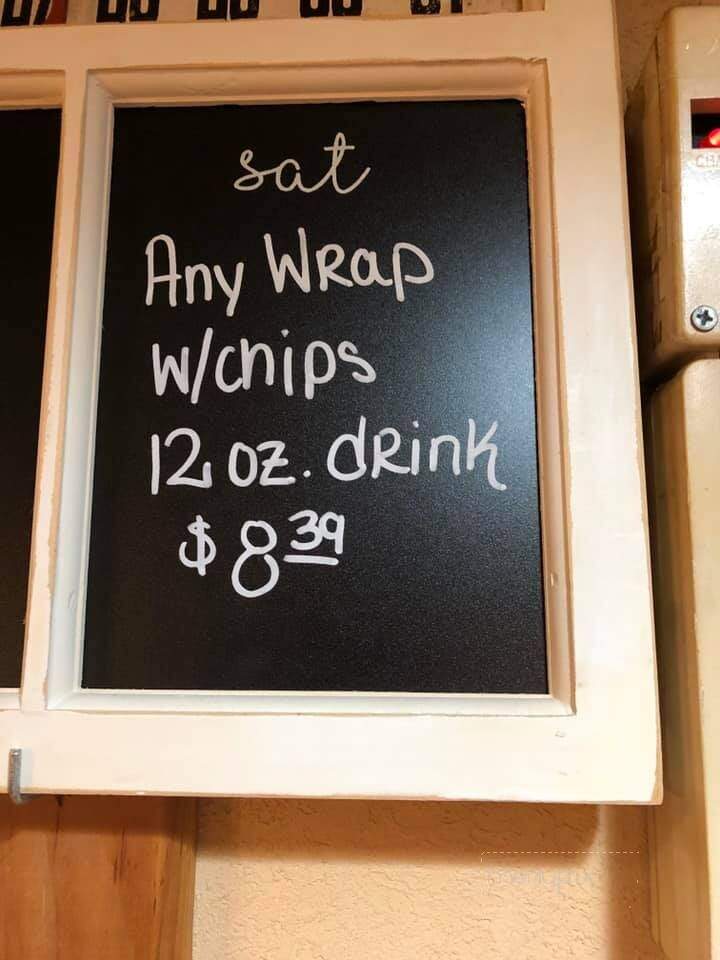 sat
Any Wrap
w/chips
12 oz. drink
$8 39